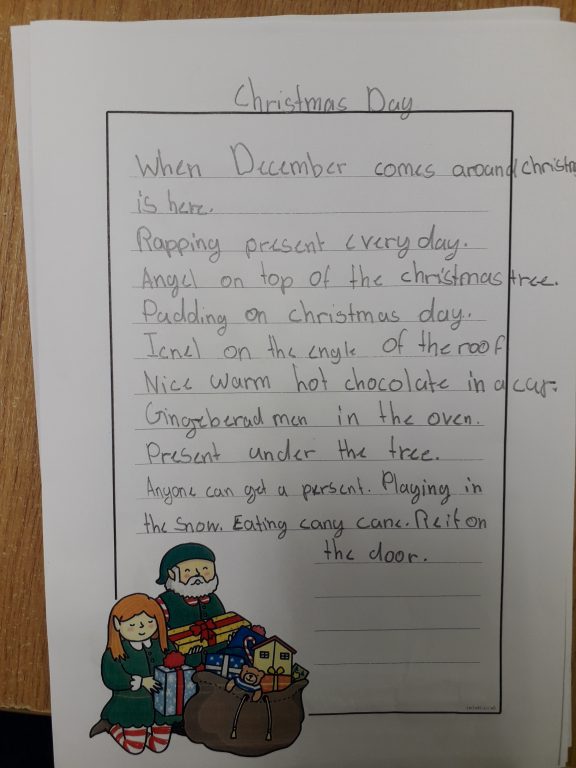 Christmas Day
When December comes around christm
is here.
Rapping present every day.
Angel on top of the christmas tree.
Padding on christmas day.
Icnel on the engle of the roof
Nice warm hot chocolate in a cup.
Gingeberad men in the oven.
Present under the tree.
Anyone can get a persent. Playing in
the snow. Eating cany cane. Reit on
the door.